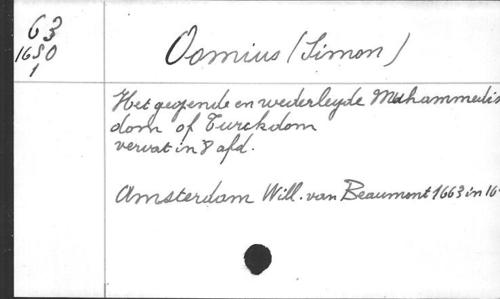 63
1650
1
Oomius (Simon)
Het geopende en wederleyde Muhammedis
dom of Turckdom
vervat in 8 afd.
Amsterdam Will. van Beaumont 1663 in 16